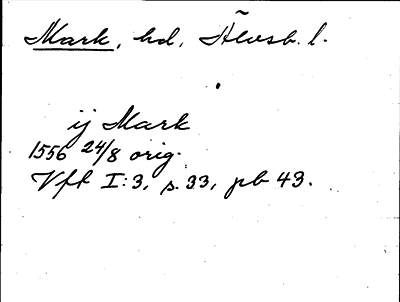 Mark, hd, Älvsb. l.
ij Mark
1556 24/8 orig.
Vft I:3, s. 33, pb 43.